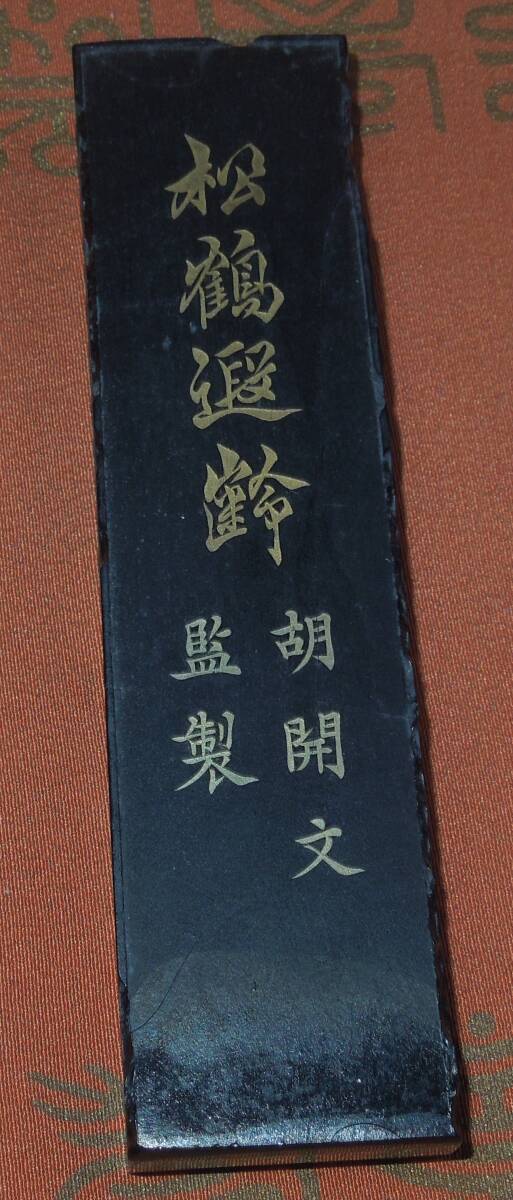 松鶴遐齡
胡開文
監製